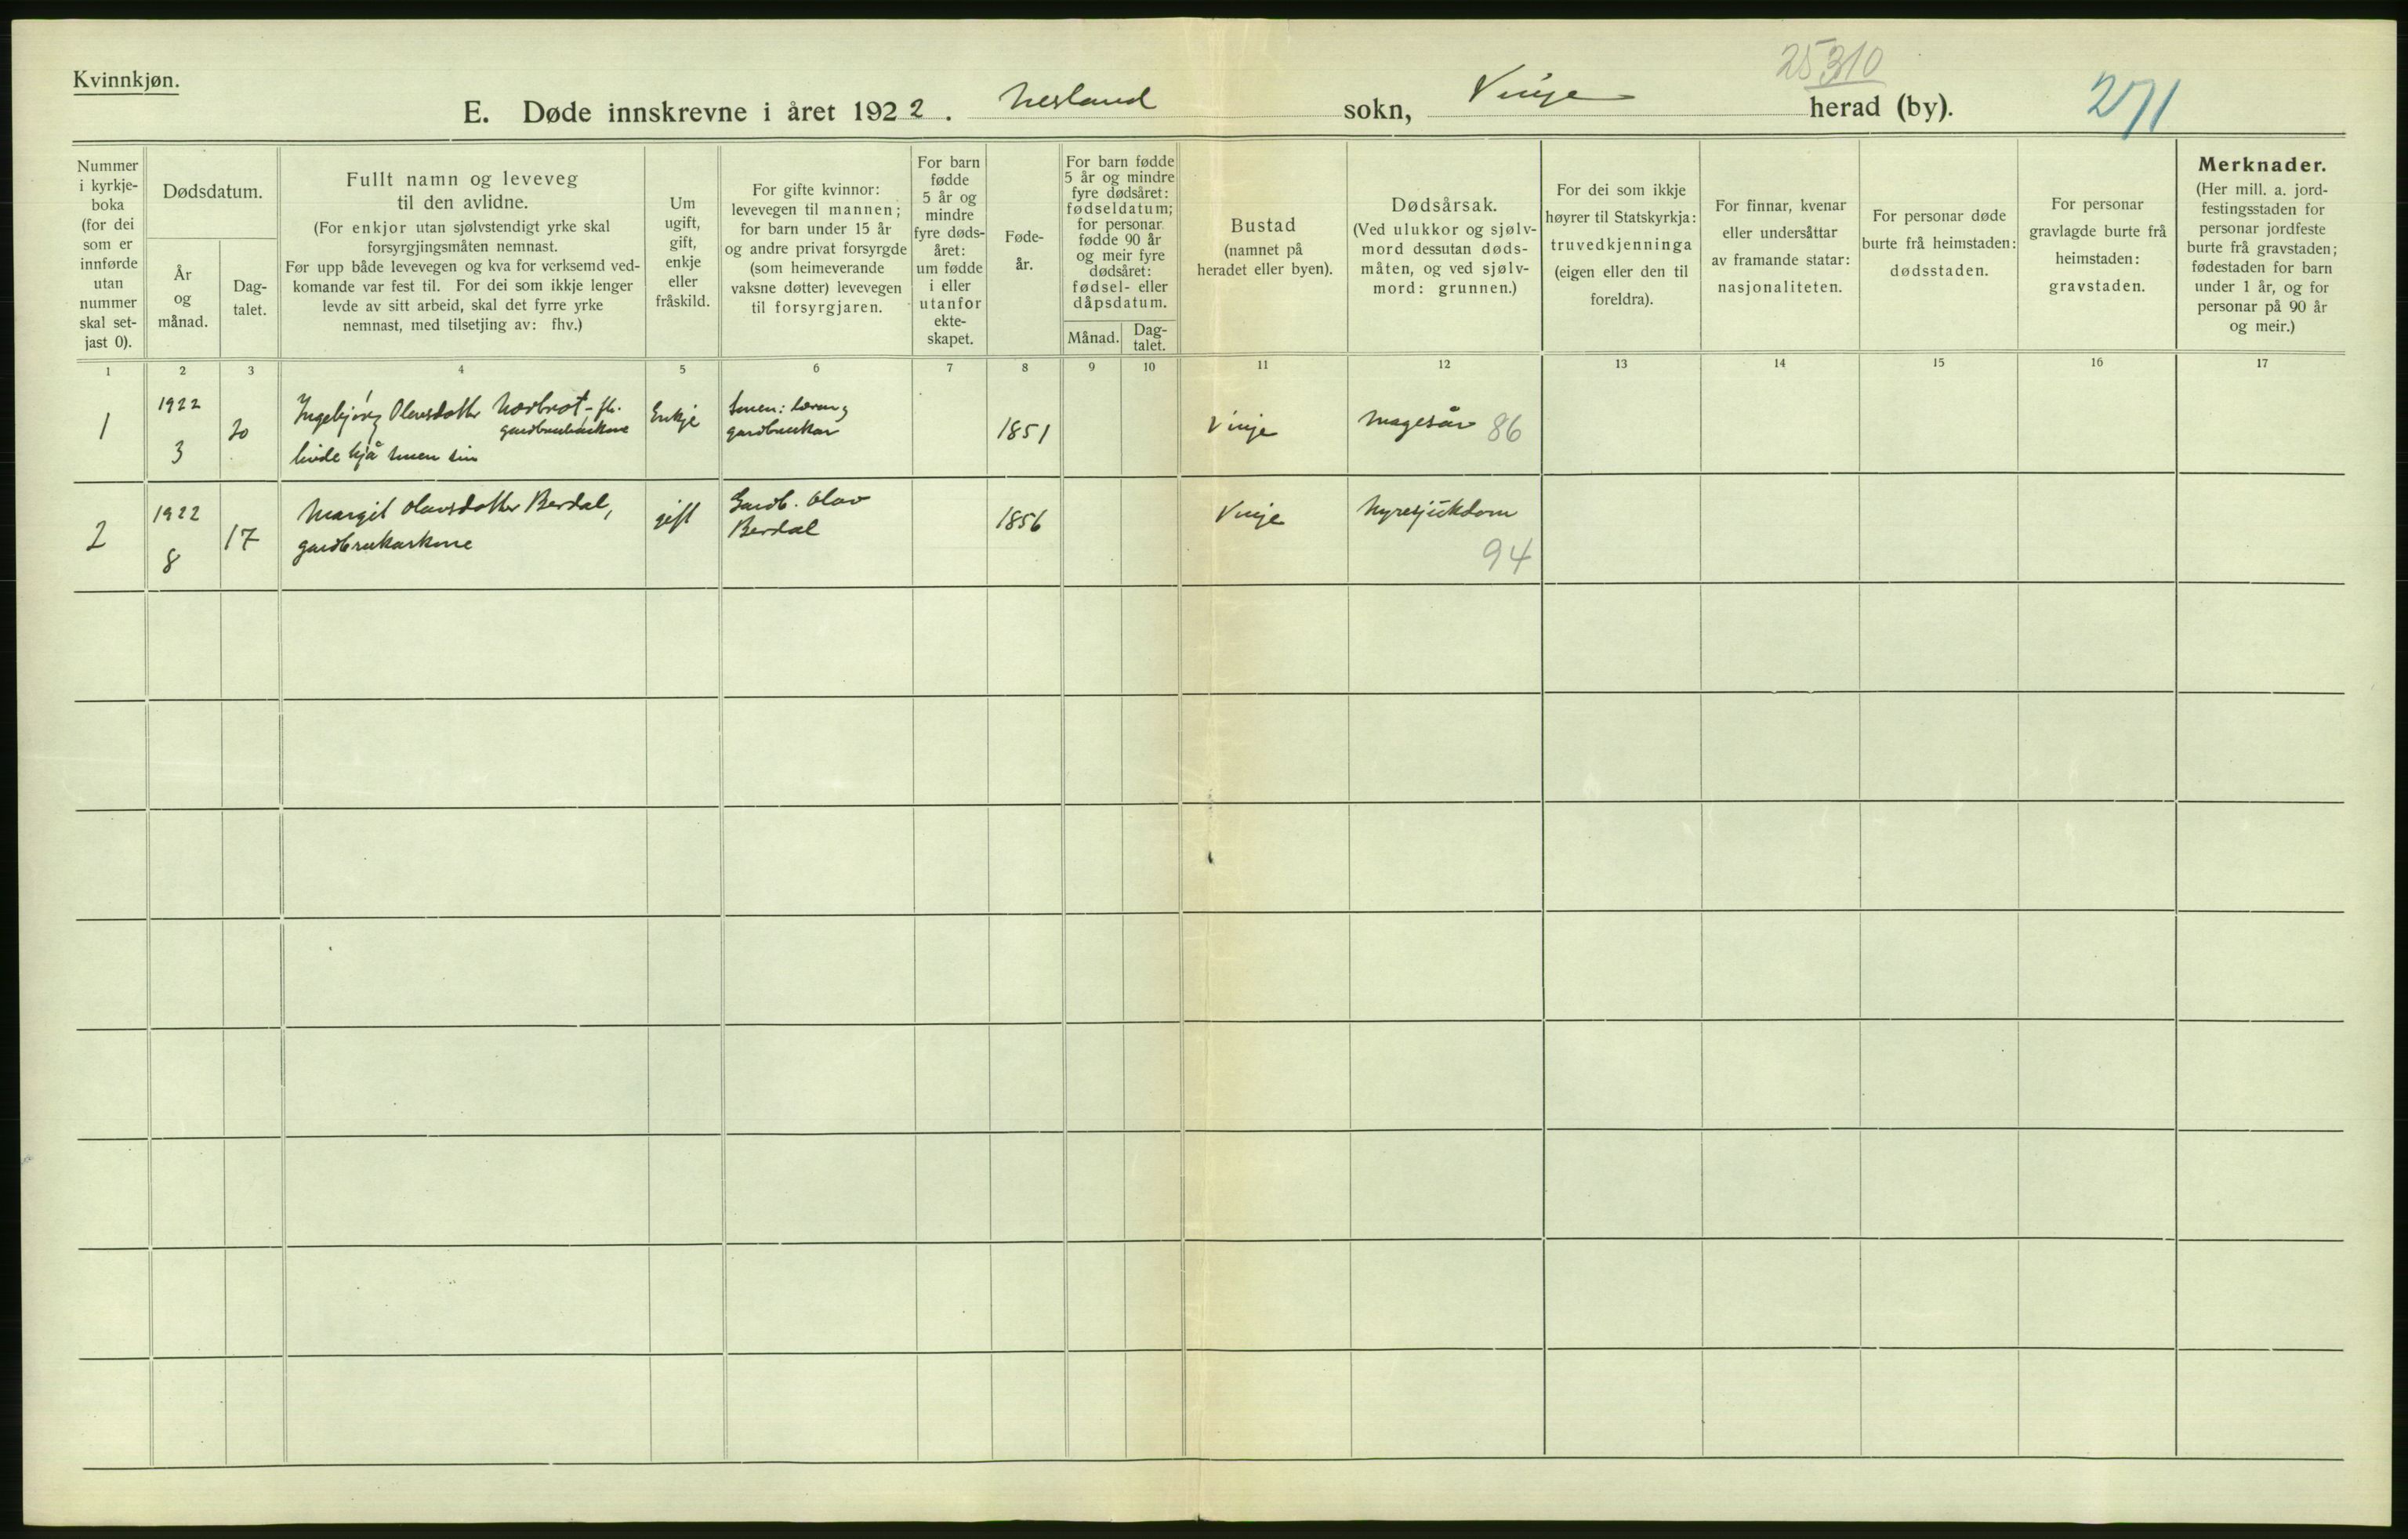 Kvinnkjøn.
25310
271
E. Døde innskrevne i året 1922. Nesland sokn, Vinje herad (by).
Nummer
i kyrkje-
boka
(for dei
som er
innførde
utan
nummer
skal set-
jast 0).
Dødsdatum.
År
og
månad.
Dag-
talet.
Fullt namn og leveveg
til den avlidne.
(For enkjor utan sjølvstendigt yrke skal
forsyrgjingsmåten nemnast.
Før upp både levevegen og kva for verksemd ved-
komande var fest til. For dei som ikkje lenger
levde av sitt arbeid, skal det fyrre yrke
nemnast, med tilsetjing av: fhv.)
Um
ugift,
gift,
enkje
eller
fråskild.
For gifte kvinnor:
levevegen til mannen;
for barn under 15 år
og andre privat forsyrgde
(som heimeverande
vaksne døtter) levevegen
til forsyrgjaren.
For barn
fødde
5 år og
mindre
fyre døds-
året:
um fødde
i eller
utanfor
ekte-
skapet.
Føde-
år.
For barn fødde
5 år og mindre
fyre dødsåret:
fødseldatum;
for personar
fødde 90 år
og meir fyre
dødsåret:
fødsel- eller
dåpsdatum.
Månad.
Dag-
talet.
Bustad
(namnet på
heradet eller byen).
Dødsårsak.
(Ved ulukkor og sjølv-
mord dessutan døds-
måten, og ved sjølv-
mord: grunnen.)
For dei som ikkje
høyrer til Statskyrkja:
truvedkjenninga
(eigen eller den til
foreldra).
For finnar, kvenar
eller undersåttar
av framande statar:
nasjonaliteten.
For personar døde
burte frå heimstaden:
dødsstaden.
For personar
gravlagde burte frå
heimstaden:
gravstaden.
Merknader.
(Her mill. a. jord-
festingsstaden for
personar jordfeste
burte frå gravstaden;
fødestaden for barn
under 1 år, og for
personar på 90 år
og meir.)
1 2 3 4 5 6 7 8 9 10 11 12 13 14 15 16 17
1 1922 3 20 Ingebjörg Olavsdotter
gardbrukarkone
livde hjå sonen sin
Enkje
sonen:
gardbrukar
1851 Vinje Magesår 86
2 1922 8 17 Margit Olavsdotter Berdal,
gardbrukarkone
gift
Gardb. Olav
Berdal
1856 Vinje Nyresjukdom
94